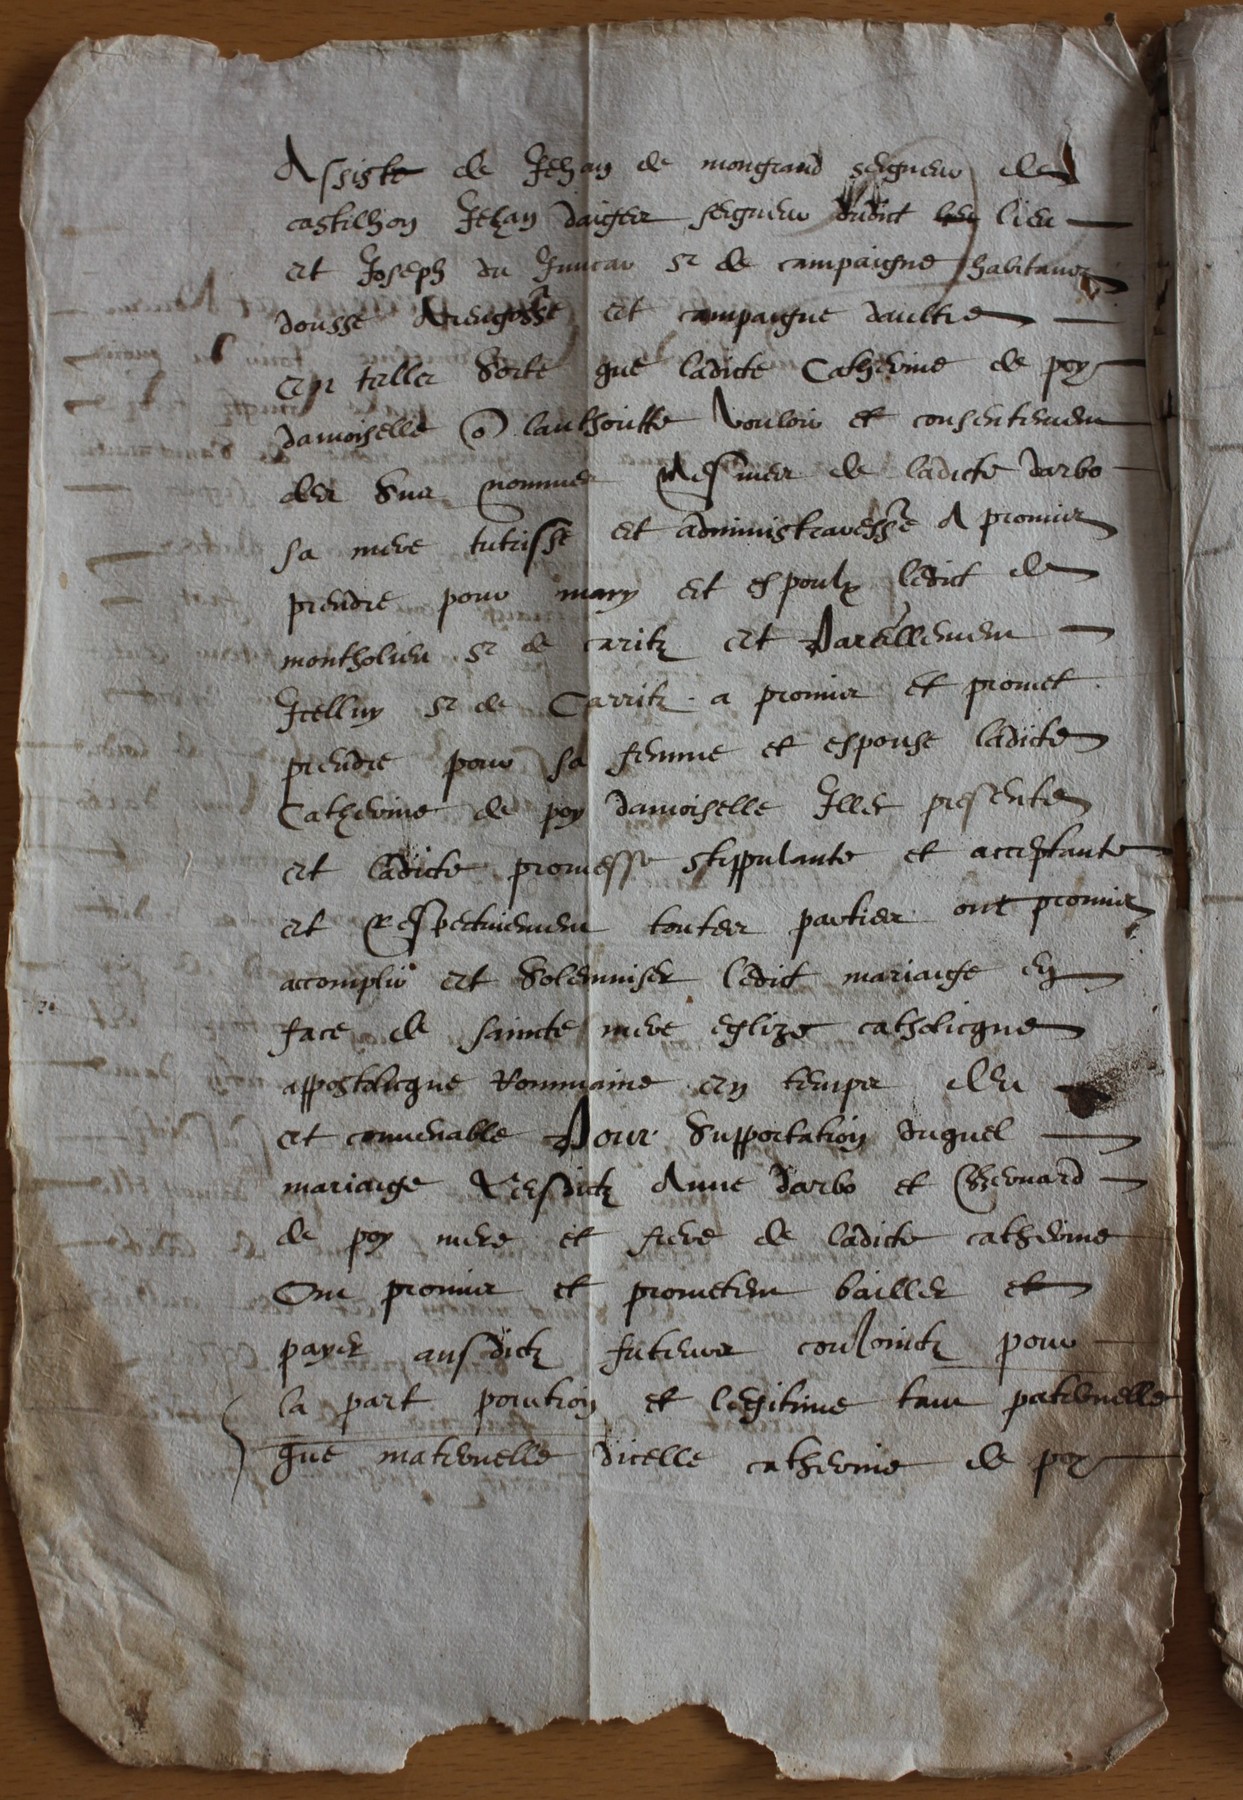 Assiste de Jehan de mongrand seigneur de
castilhon Jehan daiger seigneur dudict lieu
et Joseph du Juncar Sr de campaigne habitans
dousse Arengosse et campaigne daultre
en telle sorte que ladicte Catherine de poy
damoiselle o lauthoritte vouloir et consentement
des sus nommes Mesmes de ladicte darbo
sa mere tutrisse et administraresse A promis
prendre pour mary et espoulx ledict de
montholieu Sr de caritz et Pareillement
Icelluy Sr de Carritz a promis et promet
prendre pour sa femme et espouse ladicte
Catherine de poy damoiselle Illec presente
et ladicte promesse stippulante et acceptante
et Respectivement toutes parties ont promis
accomplir et Solemniser ledict mariaige en
face de saincte mere eglize catholicque
appostolicque Rommaine en temps deu
et convenable Pour Supportation duquel
mariaige Lesdictz Anne darbo et Bernard
de poy mere et frere de ladicte catherine
Ont promis et prometent bailler et
payer ausdictz futeurs conJoinctz pour
la part porution et legitime tant paternelle
que maternelle dicelle catherine de poy